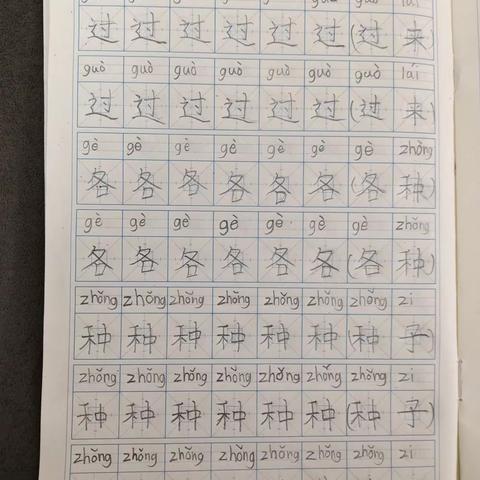 guò guò lái
过 过 过 过 过 过 (过 来)
guò guò guò guò guò guò guò lái
过 过 过 过 过 过 (过 来)
gè gè gè gè gè gè gè zhǒng
各 各 各 各 各 各 (各 种)
gè gè gè gè gè gè gè zhǒng
各 各 各 各 各 各 (各 种)
zhǒng zhǒng zhǒng zhǒng zhǒng zhǒng zhǒng zi
种 种 种 种 种 种 (种 子)
zhǒng zhǒng zhǒng zhǒng zhǒng zhǒng zhǒng zi
种 种 种 种 种 种 (种 子)
zhǒng zhǒng zhǒng zhǒng zhǒng zhǒng zhǒng zi